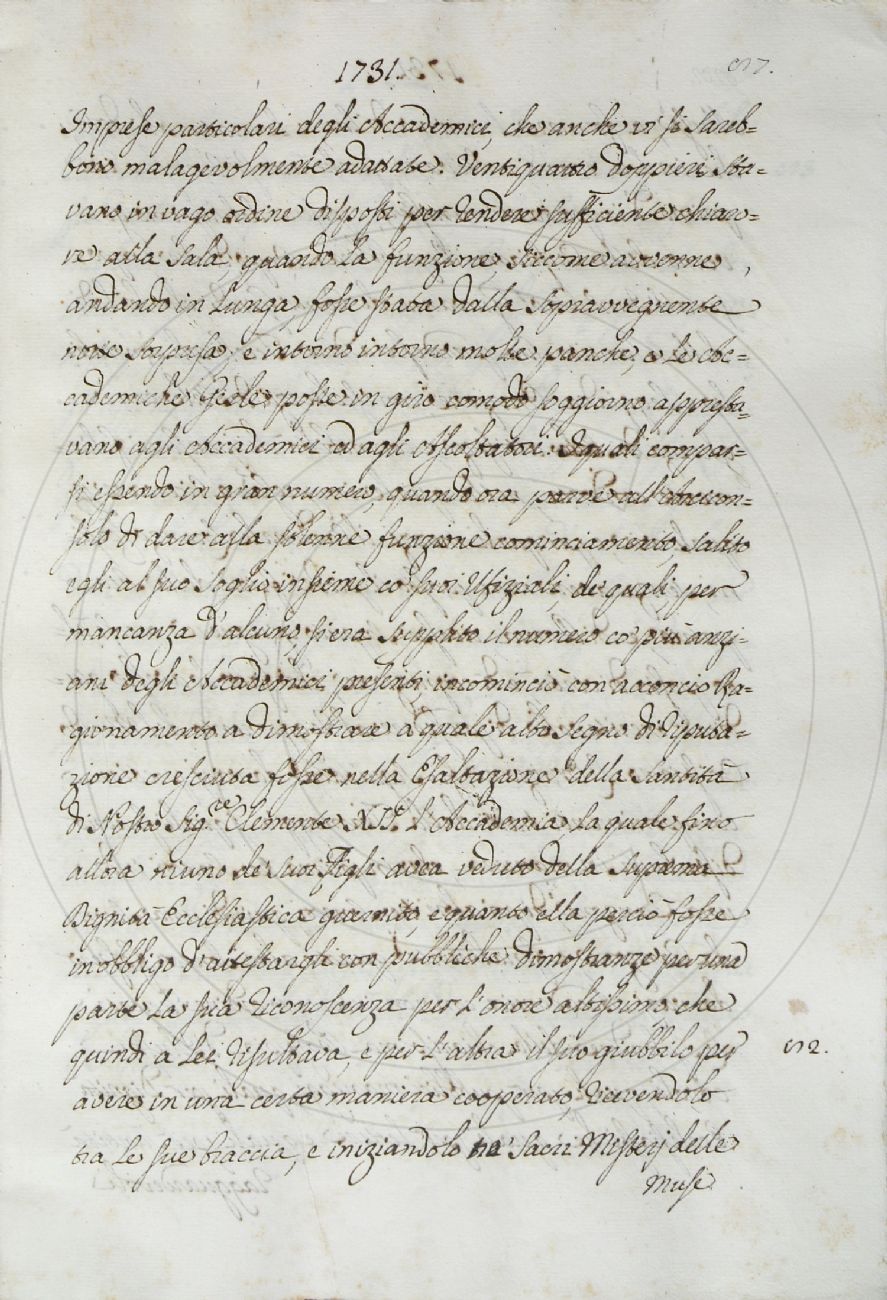 1731.
Imprese particolari degli Accademici, che anche vi si sareb=
bono malagevolmente adattate. Ventiquattro doppieri sta=
vano in vago ordine disposti per rendere sufficiente chiaro=
re alla Sala, quando la funzione, siccome avvenne,
andando in lunga, fosse stata dalla sopravvegnente
notte sorpresa; e intorno intorno molte panche, e le Ac=
cademiche Gerle poste in giro comodo soggiorno appresta=
vano agli Accademici ed agli Ascoltatori. I quali compar=
si essendo in gran numero, quando ora parve all'Arcicon=
solo di dare alla solenne funzione cominciamento, salito
egli al suo soglio insieme co' suoi Ufiziali, de' quali, per
mancanza d'alcuno, si era supplito il numero co' più anzi=
ani degli Accademici presenti, incominciò con acconcio Ra=
gionamento a dimostrare a quale alto segno di riputa=
zione cresciuta fosse nella Esaltazione della Santità
di Nostro Sig.re Clemente XII. l'Accademia la quale fino
allora niuno de' suoi Figli avea veduto della suprema
Dignità Ecclesiastica guernito, e quanto ella perciò fosse
in obbligo d'attestargli con pubbliche dimostranze per una
parte la sua riconoscenza per l'onore altissimo che
quindi a Lei risultava, e per l'altra il suo giubbilo per
avere in una certa maniera cooperato, ricevendolo
tra le sue braccia, e iniziandolo ne' Sacri Misterj delle
Muse